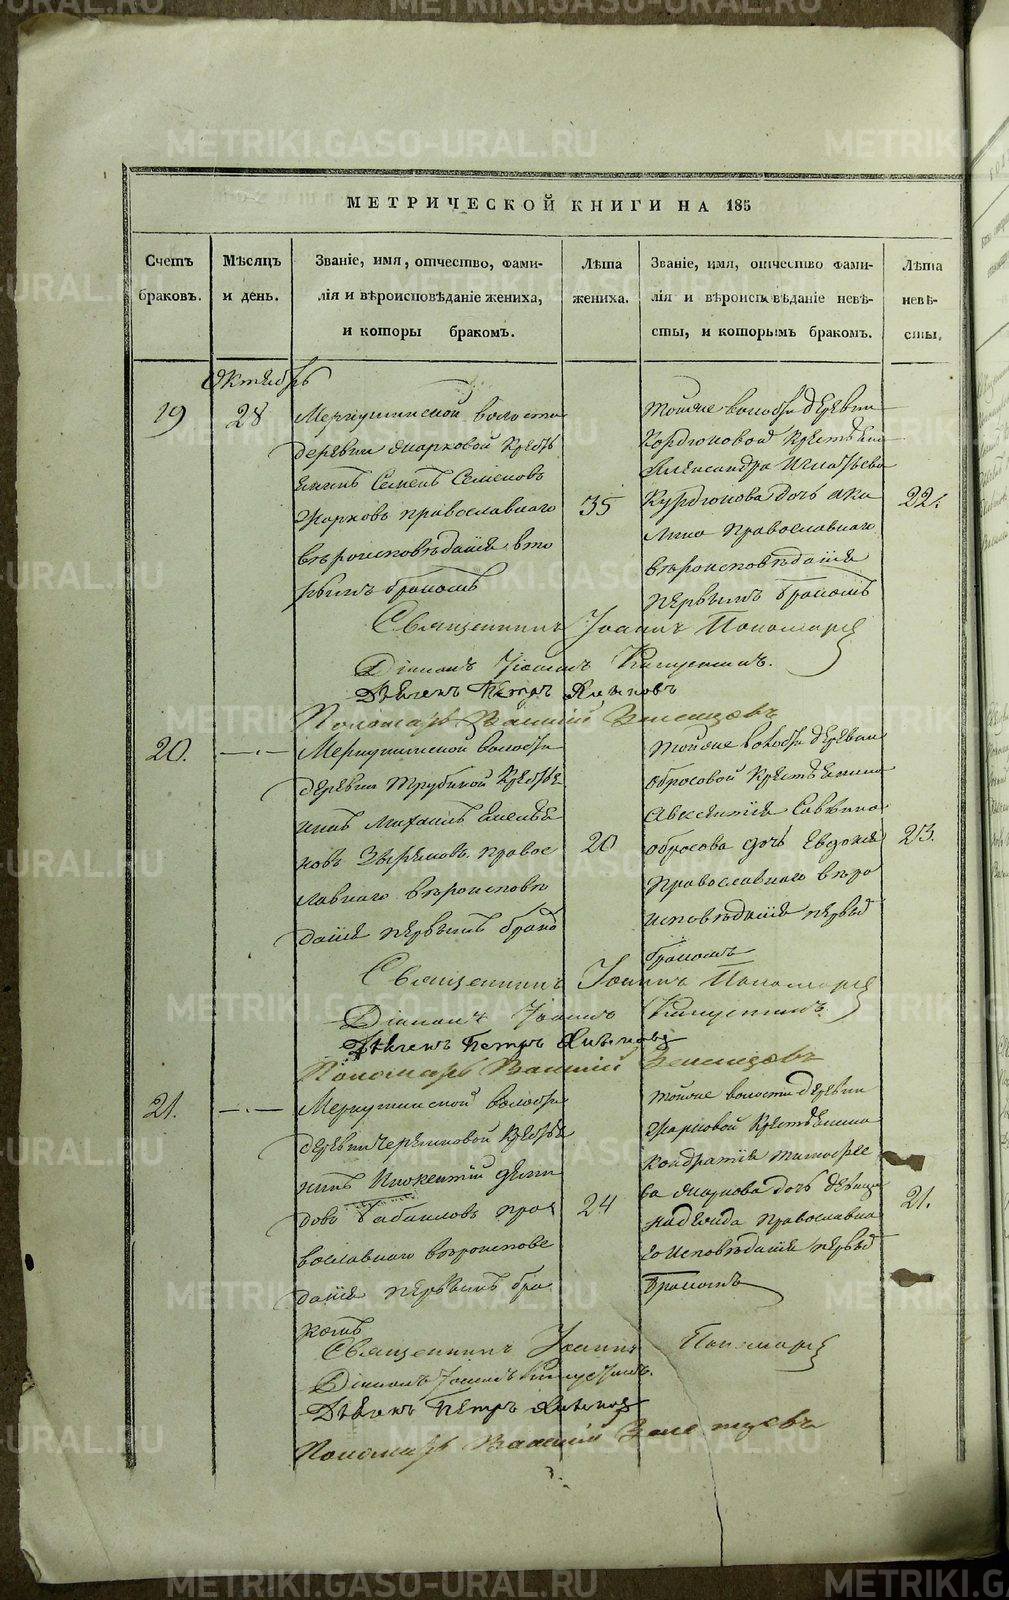 МЕТРИЧЕСКОЙ КНИГИ НА 185
Счетъ браковъ.
Мѣсяцъ и день.
Званіе, имя, отчество, фами-
лія и вѣроисповѣданіе жениха,
и которы бракомъ.
Лѣта жениха.
Званіе, имя, отчество фами-
лія и вѣроисповѣданіе невѣ-
сты, и которымъ бракомъ.
Лѣта невѣ-
сты.
Октябрь
19
28
Меркушинской волости
деревни Жарковой Крестья
нинъ Семенъ Семеновъ
Жарковъ православнаго
вѣроисповѣданія вто
рымъ бракомъ
35
тойже волости деревни
Курдюковой Крестьянина
Александра Игнатьева
Курдюкова дочь Аку
лина Православнаго
вѣроисповѣданія
первымъ бракомъ
22.
Священникъ Іоаннъ Пономаревъ
Діаконъ Іоаннъ
Дьячекъ Петръ
Пономарь Василій
20.
Меркушинской волости
деревни Трубиной Крестья
нинъ Михаилъ Емелья
новъ православ
лавнаго вѣроисповѣ
данія первымъ брако
20
тойже волости деревни
Обросовой Крестьянина
Авксентія Саввина
Обросова дочь Евдокія
православнаго вѣро
исповѣданія первы
бракомъ
23.
Священникъ Іоаннъ Пономаревъ
Діаконъ Іоаннъ
Дьячекъ Петръ
Пономарь Василій
21.
Меркушинской волости
деревни Черемновой Крестья
нинъ Инокентій Деми
довъ Табаиловъ пра
вославнаго вѣроисповѣ
данія первымъ бра
комъ
24
тойже волости деревни
Жарковой Крестьянина
Кондратія Тимофее
ва Жаркова дочь девица
Надежда Православна
го исповѣданія первы
бракомъ
21.
Священникъ Іоаннъ Пономаревъ
Діаконъ Іоаннъ
Дьячекъ Петръ
Пономарь Василій
METRIKI.GASO-URAL.RU